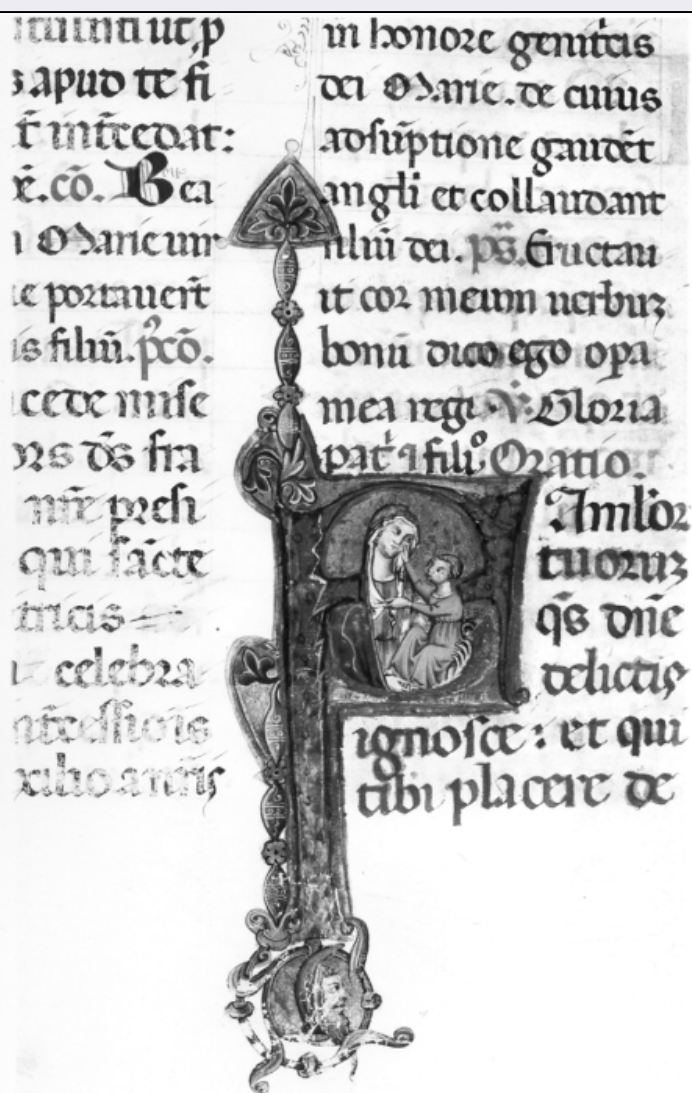 s apud te fi
t int̄cedat:
ē. cō. Bea
i Marie uir
e portauer̄t
is filiū. p̊cō.
cede mise
ors d̄s fra
nr̄e presi
qui sācte
tricis
celebra
nt̄cessiois
xilio a nr̄is
in honore genit̄cis
dei Marie. de cuius
adsūptione gaudēt
angl̄i et collaudant
filiū dei. p̄s. Eructau
it cor meum uerbuꝫ
bonū dico ego oꝑa
mea regi. V̄. Gloria
pat̄ ⁊ filiͦ. Oratio.
Aml̄or
tuoruꝫ
q̄s dn̄e
delictis
ignosce: et qui
tibi placere de